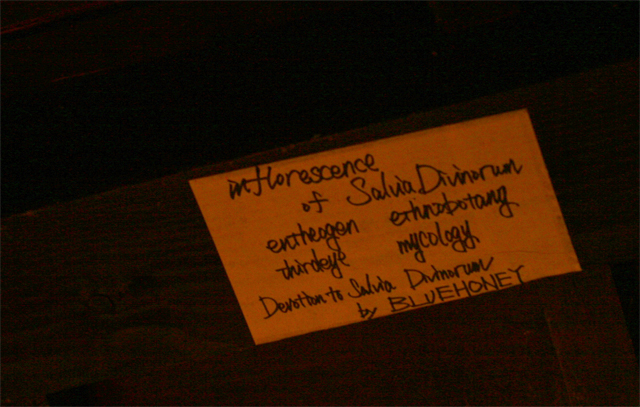 inflorescence
of Salvia Divinorum
entheogen ethnobotany
thirdeye mycology
Devotion to Salvia Divinorum
by BLUEHONEY